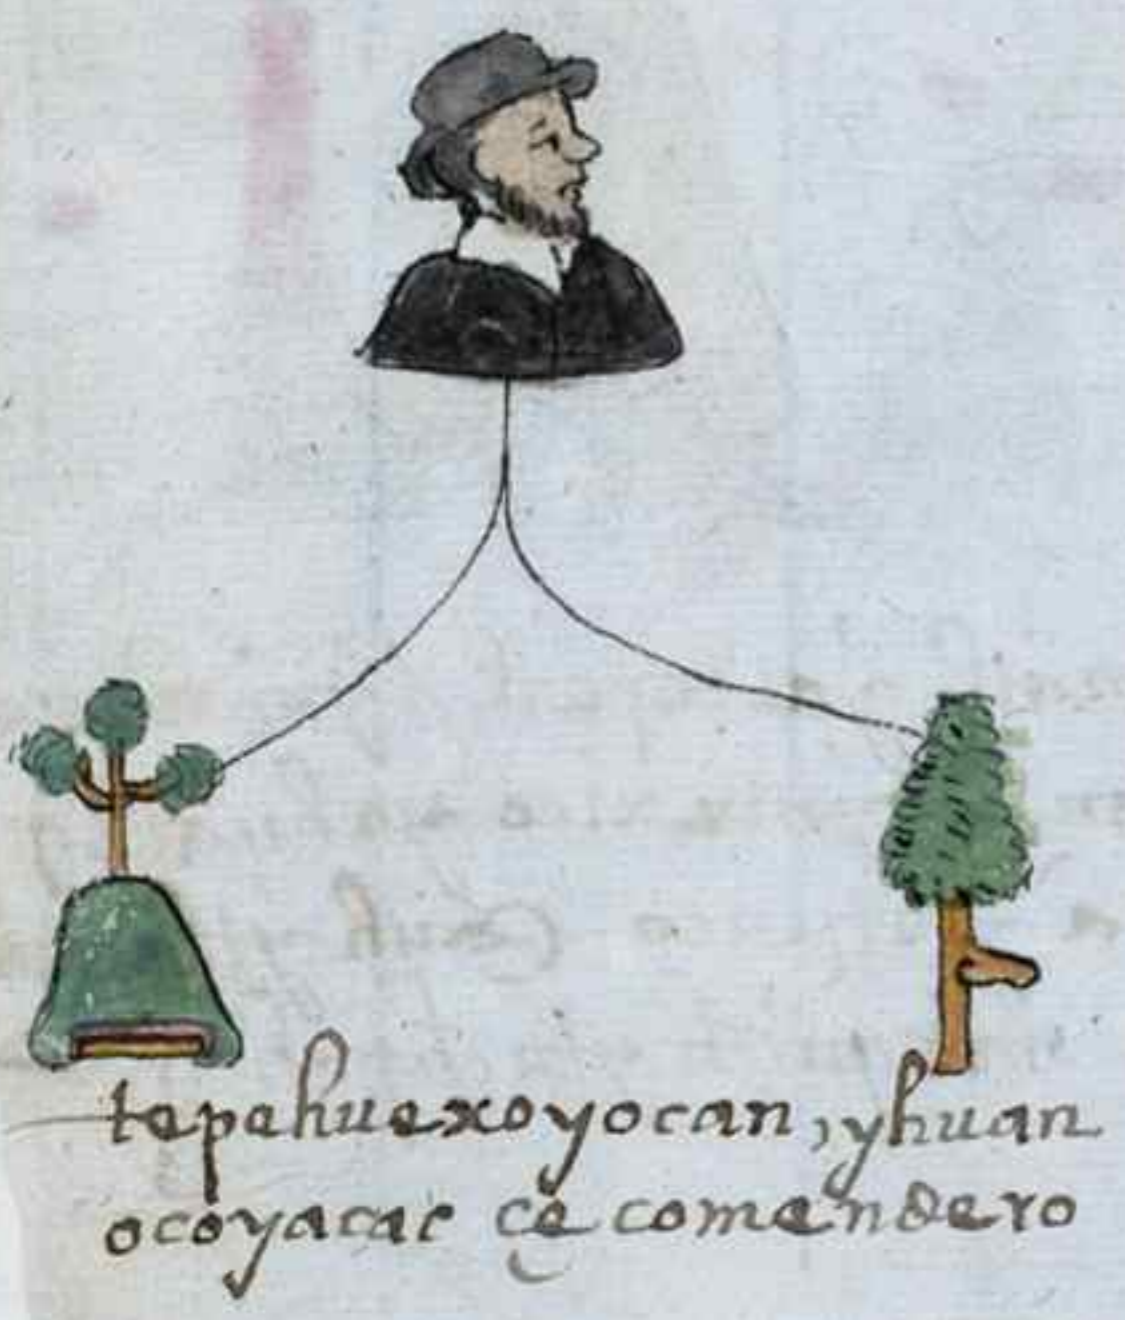 tepehuexoyocan, yhuan
ocoyacac çe comendero